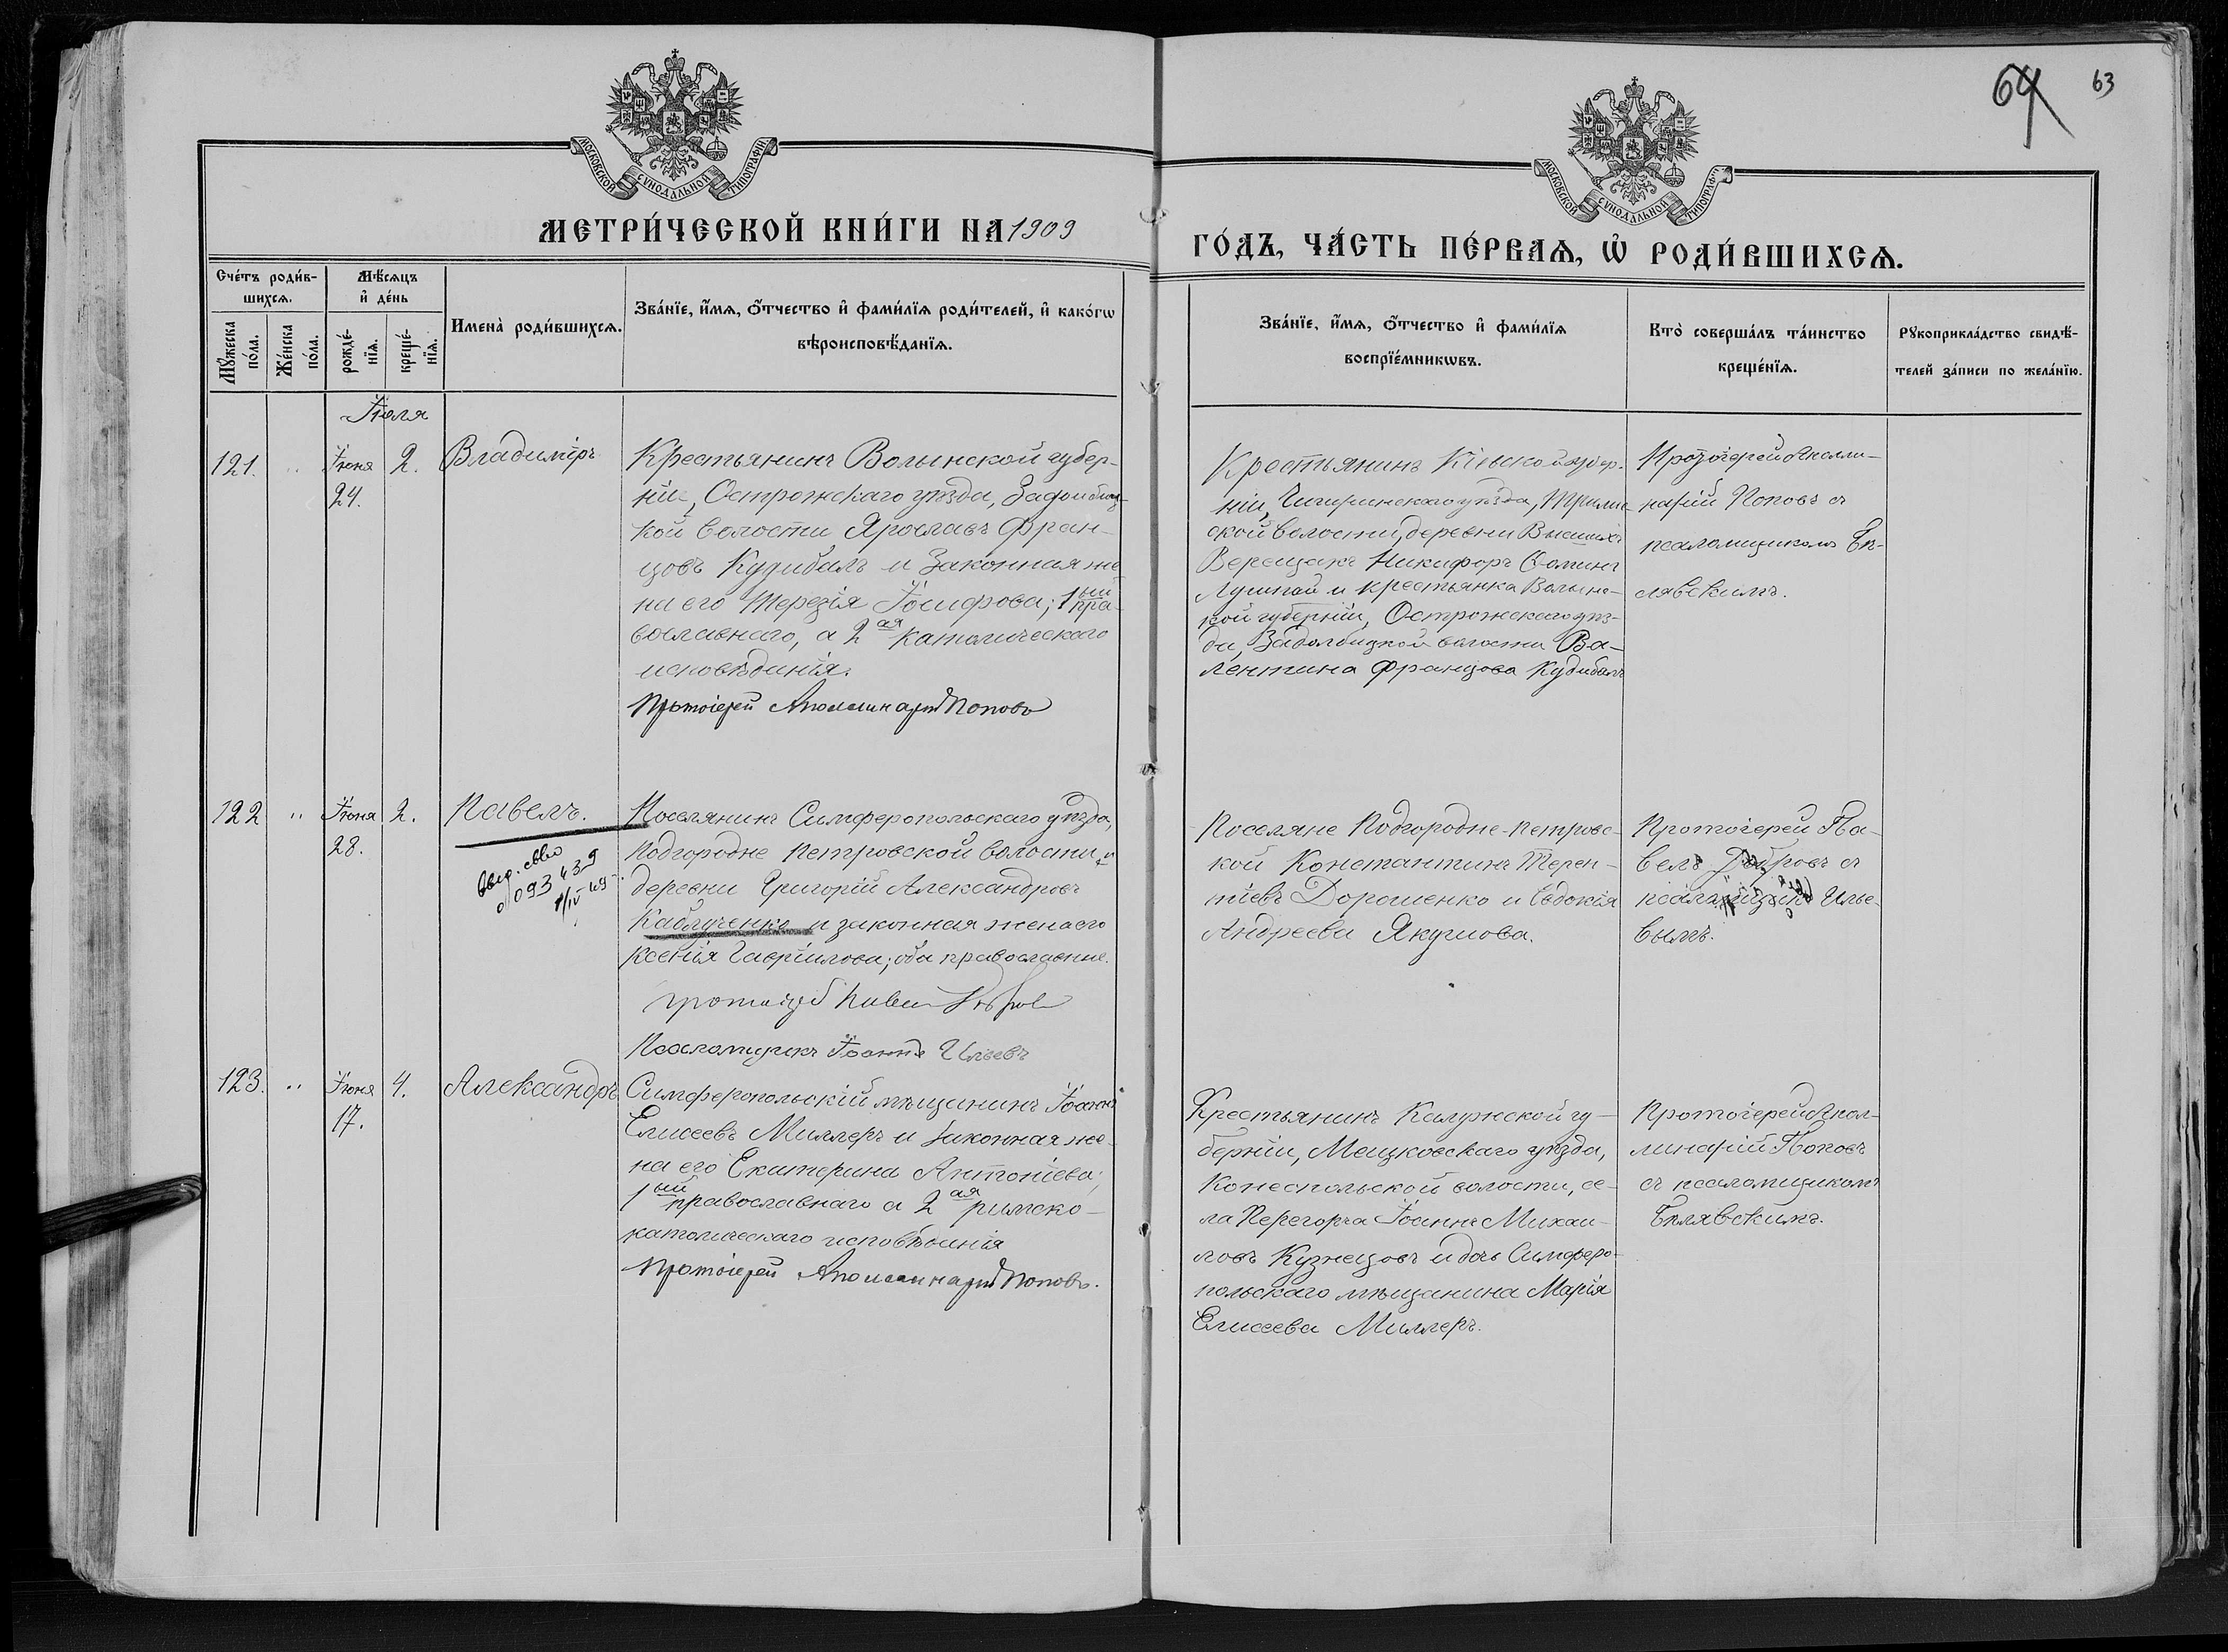 64 63
МОСКОВСКОЙ СѴНОДАЛЬНОЙ ТИПОГРАФІИ
МОСКОВСКОЙ СѴНОДАЛЬНОЙ ТИПОГРАФІИ
МЕТРИ́ЧЕСКОЙ КНИ́ГИ НА 1909
ГО́ДЪ, ЧА́СТЬ ПЕ́РВАѦ, Ѡ҆ РОДИ́ВШИХСѦ.
Сче́тъ роди́в-
шихсѧ.
Мꙋ́жеска по́ла.
Же́нска по́ла.
Мѣ́сѧцъ
и҆ де́нь
рожде́-
нїѧ.
креще́-
нїѧ.
Имена̀ роди́вшихсѧ.
Зва́нїе, и҆́мѧ, ѻ҆́тчество и҆ фами́лїѧ роди́телей, и҆ како́гѡ
вѣроисповѣ́данїѧ.
Зва́нїе, и҆́мѧ, ѻ҆́тчество и҆ фами́лїѧ
воспрїе́мникѡвъ.
Кто̀ соверша́лъ та́инство
креще́нїѧ.
Рꙋкоприкла́дство свидѣ́-
телей за́писи по жела́нїю.
Іюля
121. " Іюня 2. Владиміръ
24.
Крестьянинъ Волынской губер-
ніи, Острожскаго уѣзда, Задолбиц-
кой волости Ярославъ Фран-
цовъ Кудибалъ и законная же-
на его Терезія Іосифова; 1ый пра-
вославнаго, а 2ая католическаго
исповѣданія.
Протоіерей Аполлинарій Поповъ
Крестьянинъ Кіевской губер-
ніи, Чигиринскаго уѣзда,
ской волости, деревни Высшихъ
Верещакъ Никифоръ Фоминъ
и крестьянка Волынс-
кой губерніи, Острожскаго уѣз-
да, Задолбицкой волости Ва-
лентина Францова Кудибалъ
Протоіерей Аполли-
нарій Поповъ съ
псаломщикомъ Бѣ-
лявскимъ.
122 " Іюня 2. Павелъ.
28.
Выд. св-во
093439
1/IV 49
Поселянинъ Симферопольскаго уѣзда,
Подгородне Петровской волости, и
деревни Григорій Александровъ
Каблученко и законная жена его
Ксенія Гавріилова; оба православные.
протоіерей Павелъ Добровъ
Псаломщикъ Іоаннъ Ильевъ
Поселяне Подгородне-Петровс-
кой Константинъ Терен-
тіевъ Дорошенко и Евдокія
Андреева Якушова.
Протоіерей Па-
велъ Добровъ съ
Илье-
вымъ.
123. " Іюня 4. Александръ
17.
Симферопольскій мѣщанинъ Іоаннъ
Елисеевъ Миллеръ и законная же-
на его Екатерина Антоніева;
1ый православнаго а 2ая римско-
католическаго исповѣданія
Протоіерей Аполлинарій Поповъ.
Крестьянинъ Калужской гу-
берніи, Мещковскаго уѣзда,
Конеспольской волости, се-
ла Іоаннъ Михаи-
ловъ Кузнецовъ и дочь Симферо-
польскаго мѣщанина Марія
Елисеева Миллеръ.
Протоіерей Апол-
линарій Поповъ
съ псаломщикомъ
Бѣлявскимъ.